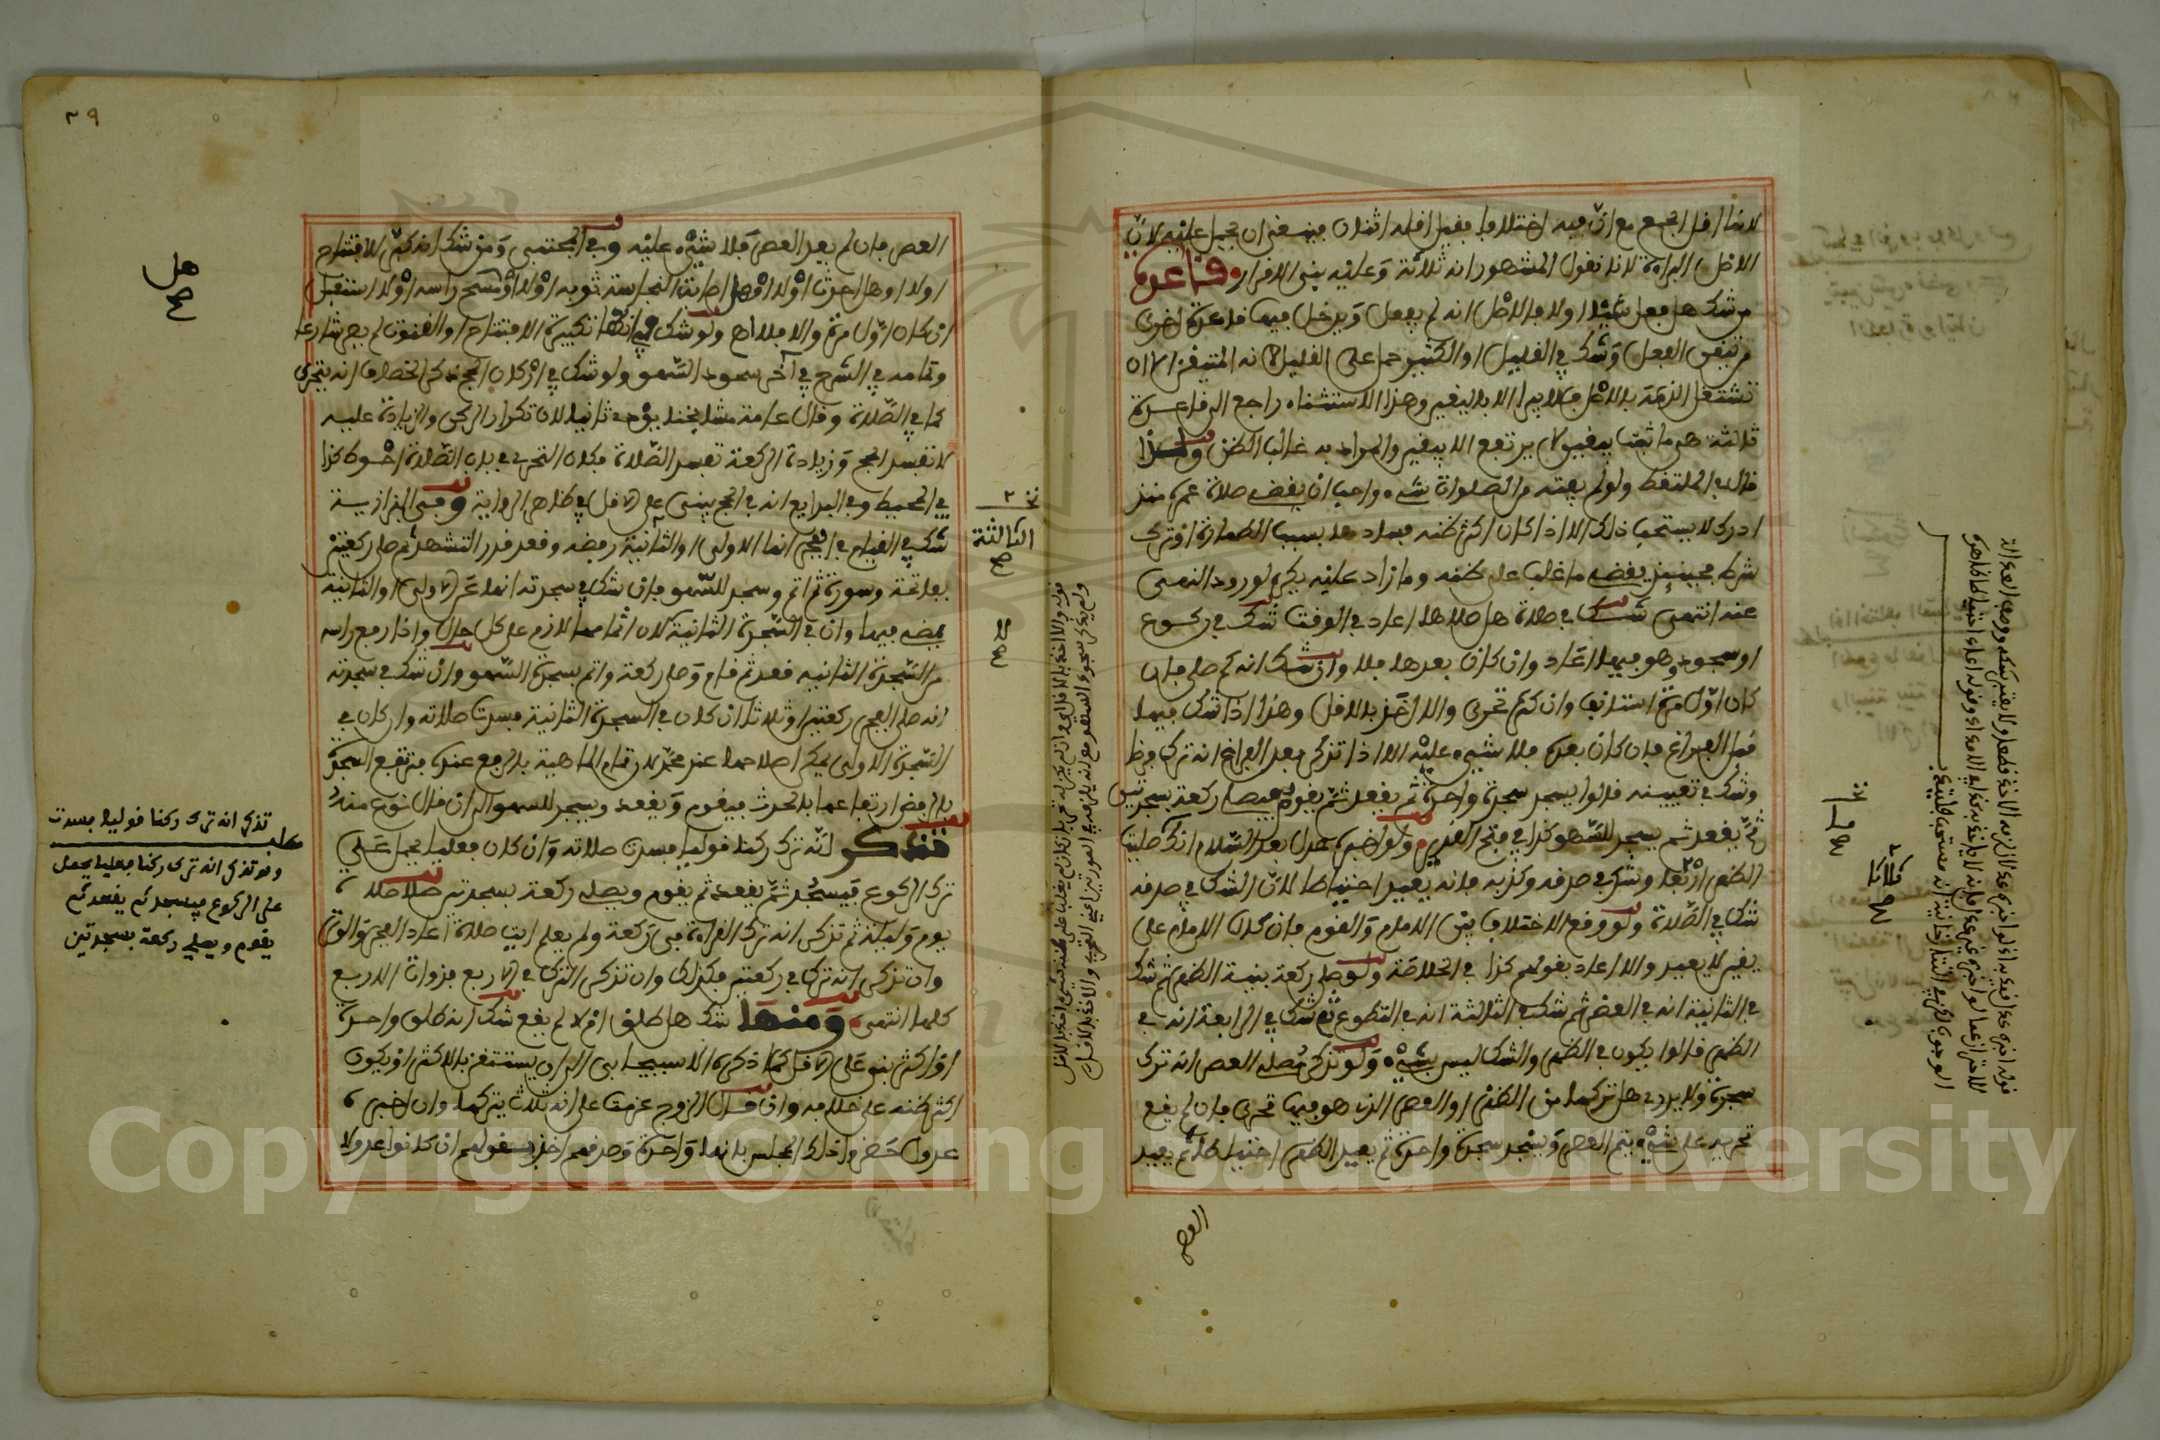 لانها اقل الجمع مع ان فيه اختلافا فقيل اقله اثنان فينبغي ان يحمل عليه لان
الاصل البراءة لانا نقول المشهور انه ثلاثة وعليه يبنى الاقرار قاعدة
من شك هل فعل شيئا اولا فالاصل انه لم يفعل ويدخل فيها قاعدة اخرى
من تيقن الفعل وشك في القليل او الكثير حمل على القليل لانه المتيقن الا ان
تشتغل الذمة بالاصل فلا يبرا الا باليقين وهذا الاستثناء راجع الى قاعدة
ثالثة هي ما ثبت بيقين لا يرتفع الا بيقين والمراد به غالب الظن ولهذا
قال في الملتقط ولو لم يفته من الصلوات شيء واحب ان يقضي صلاة عمره منذ
ادرك لا يستحب ذلك الا اذا كان اكثر ظنه فسادها بسبب الطهارة او ترك
شرط فحينئذ يقضي ما غلب على ظنه وما زاد عليه يكره لورود النهي
عنه انتهى شك في صلاة هل صلاها اعاد في الوقت شك في ركوع
او سجود وهو فيها اعاد وان كان بعدها فلا وان شك انه كم صلى فان
كان اول مرة استانف وان كثر تحرى والا اخذ بالاقل وهذا اذا شك فيها
قبل الفراغ فان كان بعده فلا شيء عليه الا اذا تذكر بعد الفراغ انه ترك فرضا
وشك في تعيينه قالوا يسجد سجدة واحدة ثم يقعد ثم يقوم فيصلي ركعة بسجدتين
ثم يقعد ثم يسجد للسهو كذا في فتح القدير ولو اخبره عدل بعد السلام انك صليت
الظهر اربعا وشك في صدقه وكذبه فانه يعيد احتياطا لان الشك في صدقه
شك في الصلاة ولو وقع الاختلاف بين الامام والقوم فان كان الامام على
يقين لا يعيد والا اعاد بقولهم كذا في الخلاصة ولو صلى ركعة بنية الظهر ثم شك
في الثانية انه في العصر ثم شك في الثالثة انه في التطوع ثم شك في الرابعة انه في
الظهر قالوا يكون في الظهر والشك ليس بشيء ولو تذكر مصلي العصر انه ترك
سجدة ولا يدري هل تركها من الظهر او العصر الذي هو فيها تحرى فان لم يقع
تحريه على شيء يتم العصر ويسجد سجدة واحدة ثم يعيد الظهر احتياطا ثم يعيد
العصر
٣٩
العصر فان لم يعد العصر فلا شيء عليه وفي المجتبى ومن شك انه كبر للافتتاح
اولا او هل احدث اولا او هل اصابت النجاسة ثوبه اولا او مسح راسه اولا استقبل
ان كان اول مرة والا فلا اه ولو شك في انها تكبيرة الافتتاح او القنوت لم يصر شارعا
وتمامه في الشرح في آخر سجود السهو ولو شك في اركان الحج ذكر الخصاف انه يتحرى
كما في الصلاة وقال عامة مشايخنا يؤدى ثانيا لان تكرار الركن والزيادة عليه
لا تفسد الحج وزيادة الركعة تفسد الصلاة فكان التحري في باب الصلاة احوط كذا
في المحيط وفي البدايع انه في الحج يبني على الاقل في ظاهر الرواية وفي البزازية
شك في القيام في الفجر انها الاولى او الثانية رفضه وقعد قدر التشهد ثم صلى ركعتين
بفاتحة وسورة ثم اتم وسجد للسهو فان شك في سجدته انها عن الاولى او الثانية
يمضي فيها وان في السجدة الثانية لان اتمامها لازم على كل حال واذا رفع راسه
من السجدة الثانية قعد ثم قام وصلى ركعة واتم بسجدة السهو وان شك في سجدته
انه صلى الفجر ركعتين او ثلاثا ان كان في السجدة الثانية فسدت صلاته وان كان في
السجدة الاولى يمكن اصلاحها عند محمد لان تمام الماهية بالرفع عنده فترتفع السجدة
بالرفض ارتفاعها بالحدث فيقوم ويقعد ويسجد للسهو الى ان قال نوع منه
تذكر انه ترك ركنا قوليا فسدت صلاته وان كان فعليا يحمل على
ترك الركوع فيسجد ثم يقعد ثم يقوم ويصلي ركعة بسجدتين صلى صلاة
يوم وليلة ثم تذكر انه ترك القراءة في ركعة ولم يعلم اية صلاة اعاد الفجر والوتر
وان تذكر انه ترك في ركعتين فكذلك وان تذكر الترك في الاربع فذوات الاربع
كلها انتهى ومنها شك هل طلق ام لا لم يقع شك انه طلق واحدة
او اكثر بنى على الاقل كما ذكره الاسبيجابي الا ان يستيقن بالاكثر او يكون
اكثر ظنه على خلافه وان قال الزوج عزمت على انه ثلاث يتركها وان اخبره
عدول حضروا ذلك المجلس بانها واحدة وصدقهم اخذ بقولهم ان كانوا عدولا
الثالثة
صح
لا
صح
تذكر انه ترك ركنا قوليا فسدت
مطلب
ولو تذكر انه ترك ركنا فعليا يحمل
على الركوع فيسجد ثم يقعد ثم
يقوم ويصلي ركعة بسجدتين
Copyright © King Saud University